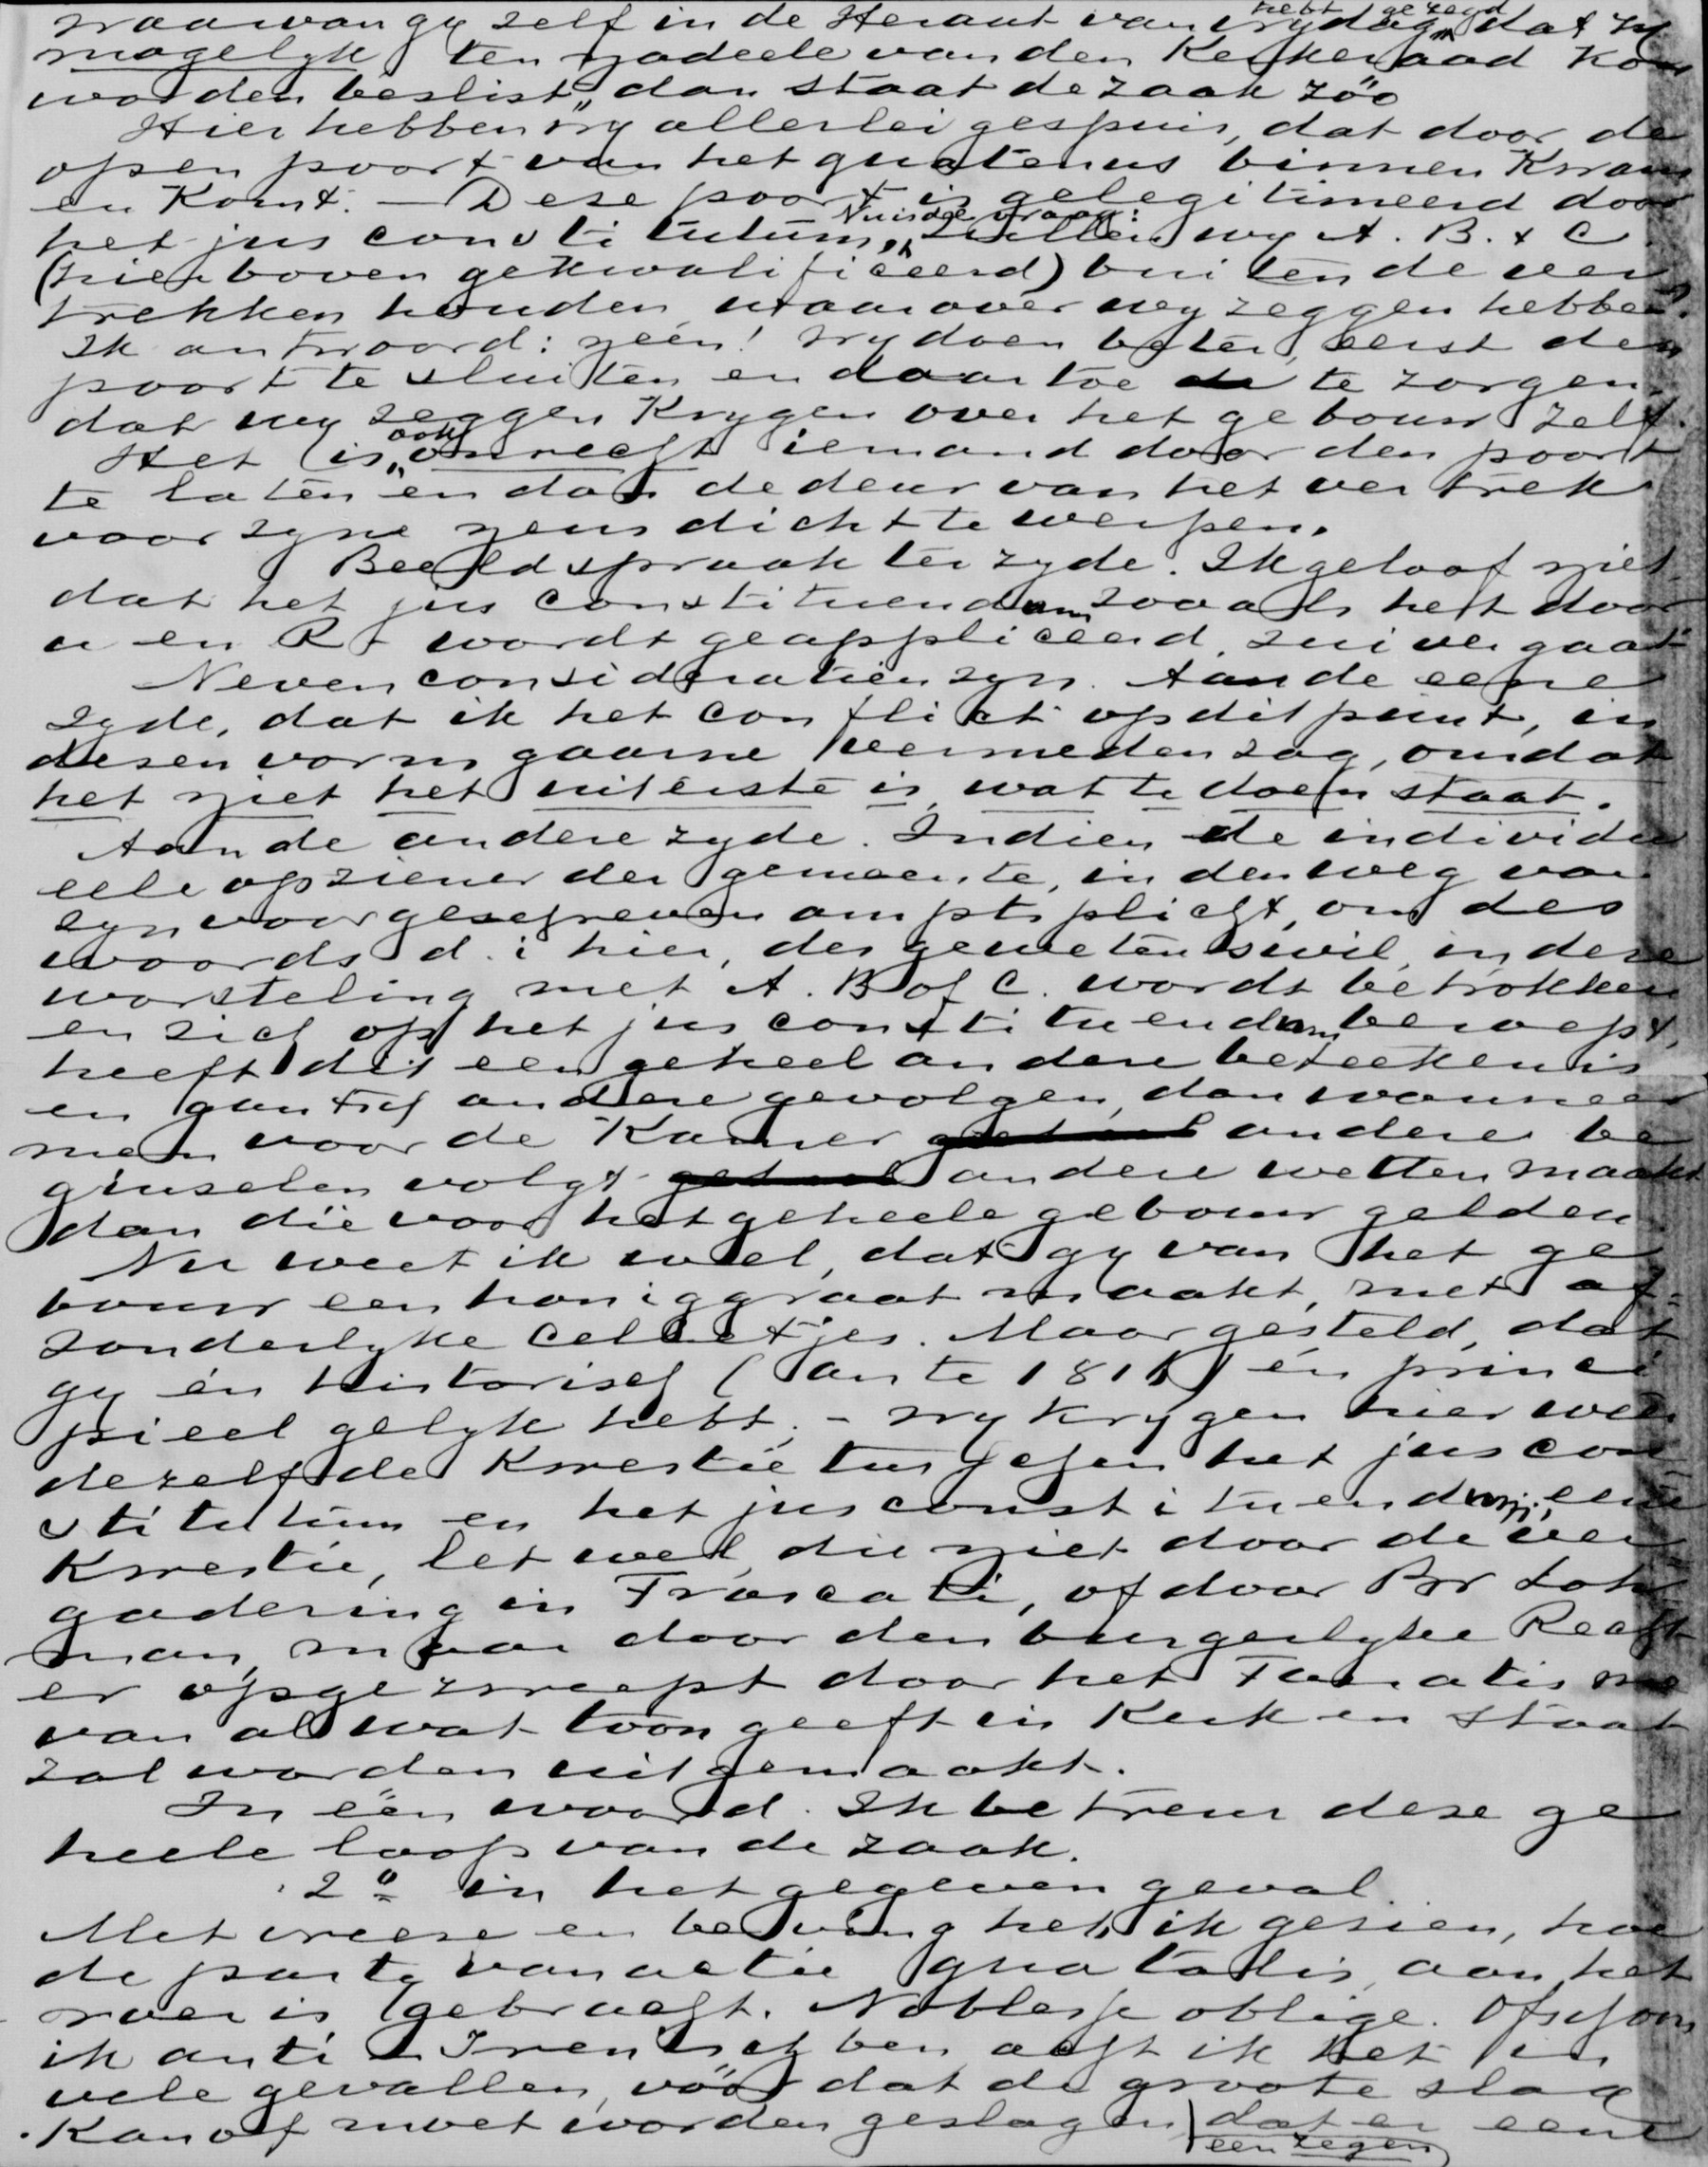 waarvan gy zelf in de Heraut van vrydag hebt gezegd dat zy
mogelyk ten nadeele van den Kerkeraad kon
worden beslist, dan staat de zaak zóó
Hier hebben wy allerlei gespuis, dat door de
open poort van het quatenus binnen kwam
en komt. — Deze poort is gelegitimeerd door
het jus constitutum. Nu is de vraag: Zullen wy A. B. & C
(hierboven gekwalificeerd) buiten de ver
trekken houden waarover wy zeggen hebben?
Ik antwoord: neen! wy doen beter, eerst den
poort te sluiten en daartoe te zorgen,
dat wy zeggen krygen over het gebouw zelf.
Het is ook onrecht iemand door den poort
te laten en dan de deur van het vertrek
voor zyne neus dicht te werpen.
Beeldspraak ter zyde. Ik geloof niet
dat het jus constituendum zooals het door
u en R. wordt geappliceerd, zuiver gaat
Nevenconsideratien zyn. Aan de eene
zyde, dat ik het conflict op dit punt, in
dezen vorm gaarne vermeden zag, omdat
het niet het uiterste is, wat te doen staat.
Aan de andere zyde. Indien de individu
eele opziener der gemeente, in den weg van
zyn voorgeschreven amptsplicht, om des
woords d. i hier, des gewetens wil, in deze
worsteling met A. B of C. wordt betrokken
en zich op het jus constituendum beroept,
heeft dit een geheel andere beteekenis
en gantsch andere gevolgen, dan wanneer
men voor de Kamer andere be
ginselen volgt andere wetten maakt
dan die voor het geheele gebouw gelden.
Nu weet ik wel, dat gy van het ge
bouw een honiggraat maakt, met af-
zonderlyke celletjes. Maar gesteld, dat
gy én historisch (ante 1816) én princi
pieel gelyk hebt; — wy krygen hier weer
dezelfde kwestie tusschen het jus con
stitutum en het jus constituendum; eene
kwestie, let wel, die niet door de ver
gadering in Frascati, of door Br Loh
man, maar door den burgerlyke Recht
er opgezweept door het Fanatisme
van al wat toon geeft in Kerk en Staat
zal worden uitgemaakt.
In één woord. Ik betreur deze ge
heele loop van de zaak.
2° in het gegeven geval.
Met vreeze en beving heb ik gezien, hoe
de party van actie qua talis, aan het
roer is gebracht. Noblesse oblige. Ofschoon
ik anti-Irenisch ben acht ik het in
vele gevallen, vóór dat de groote slag
kan of moet worden geslagen een zegen dat er eene